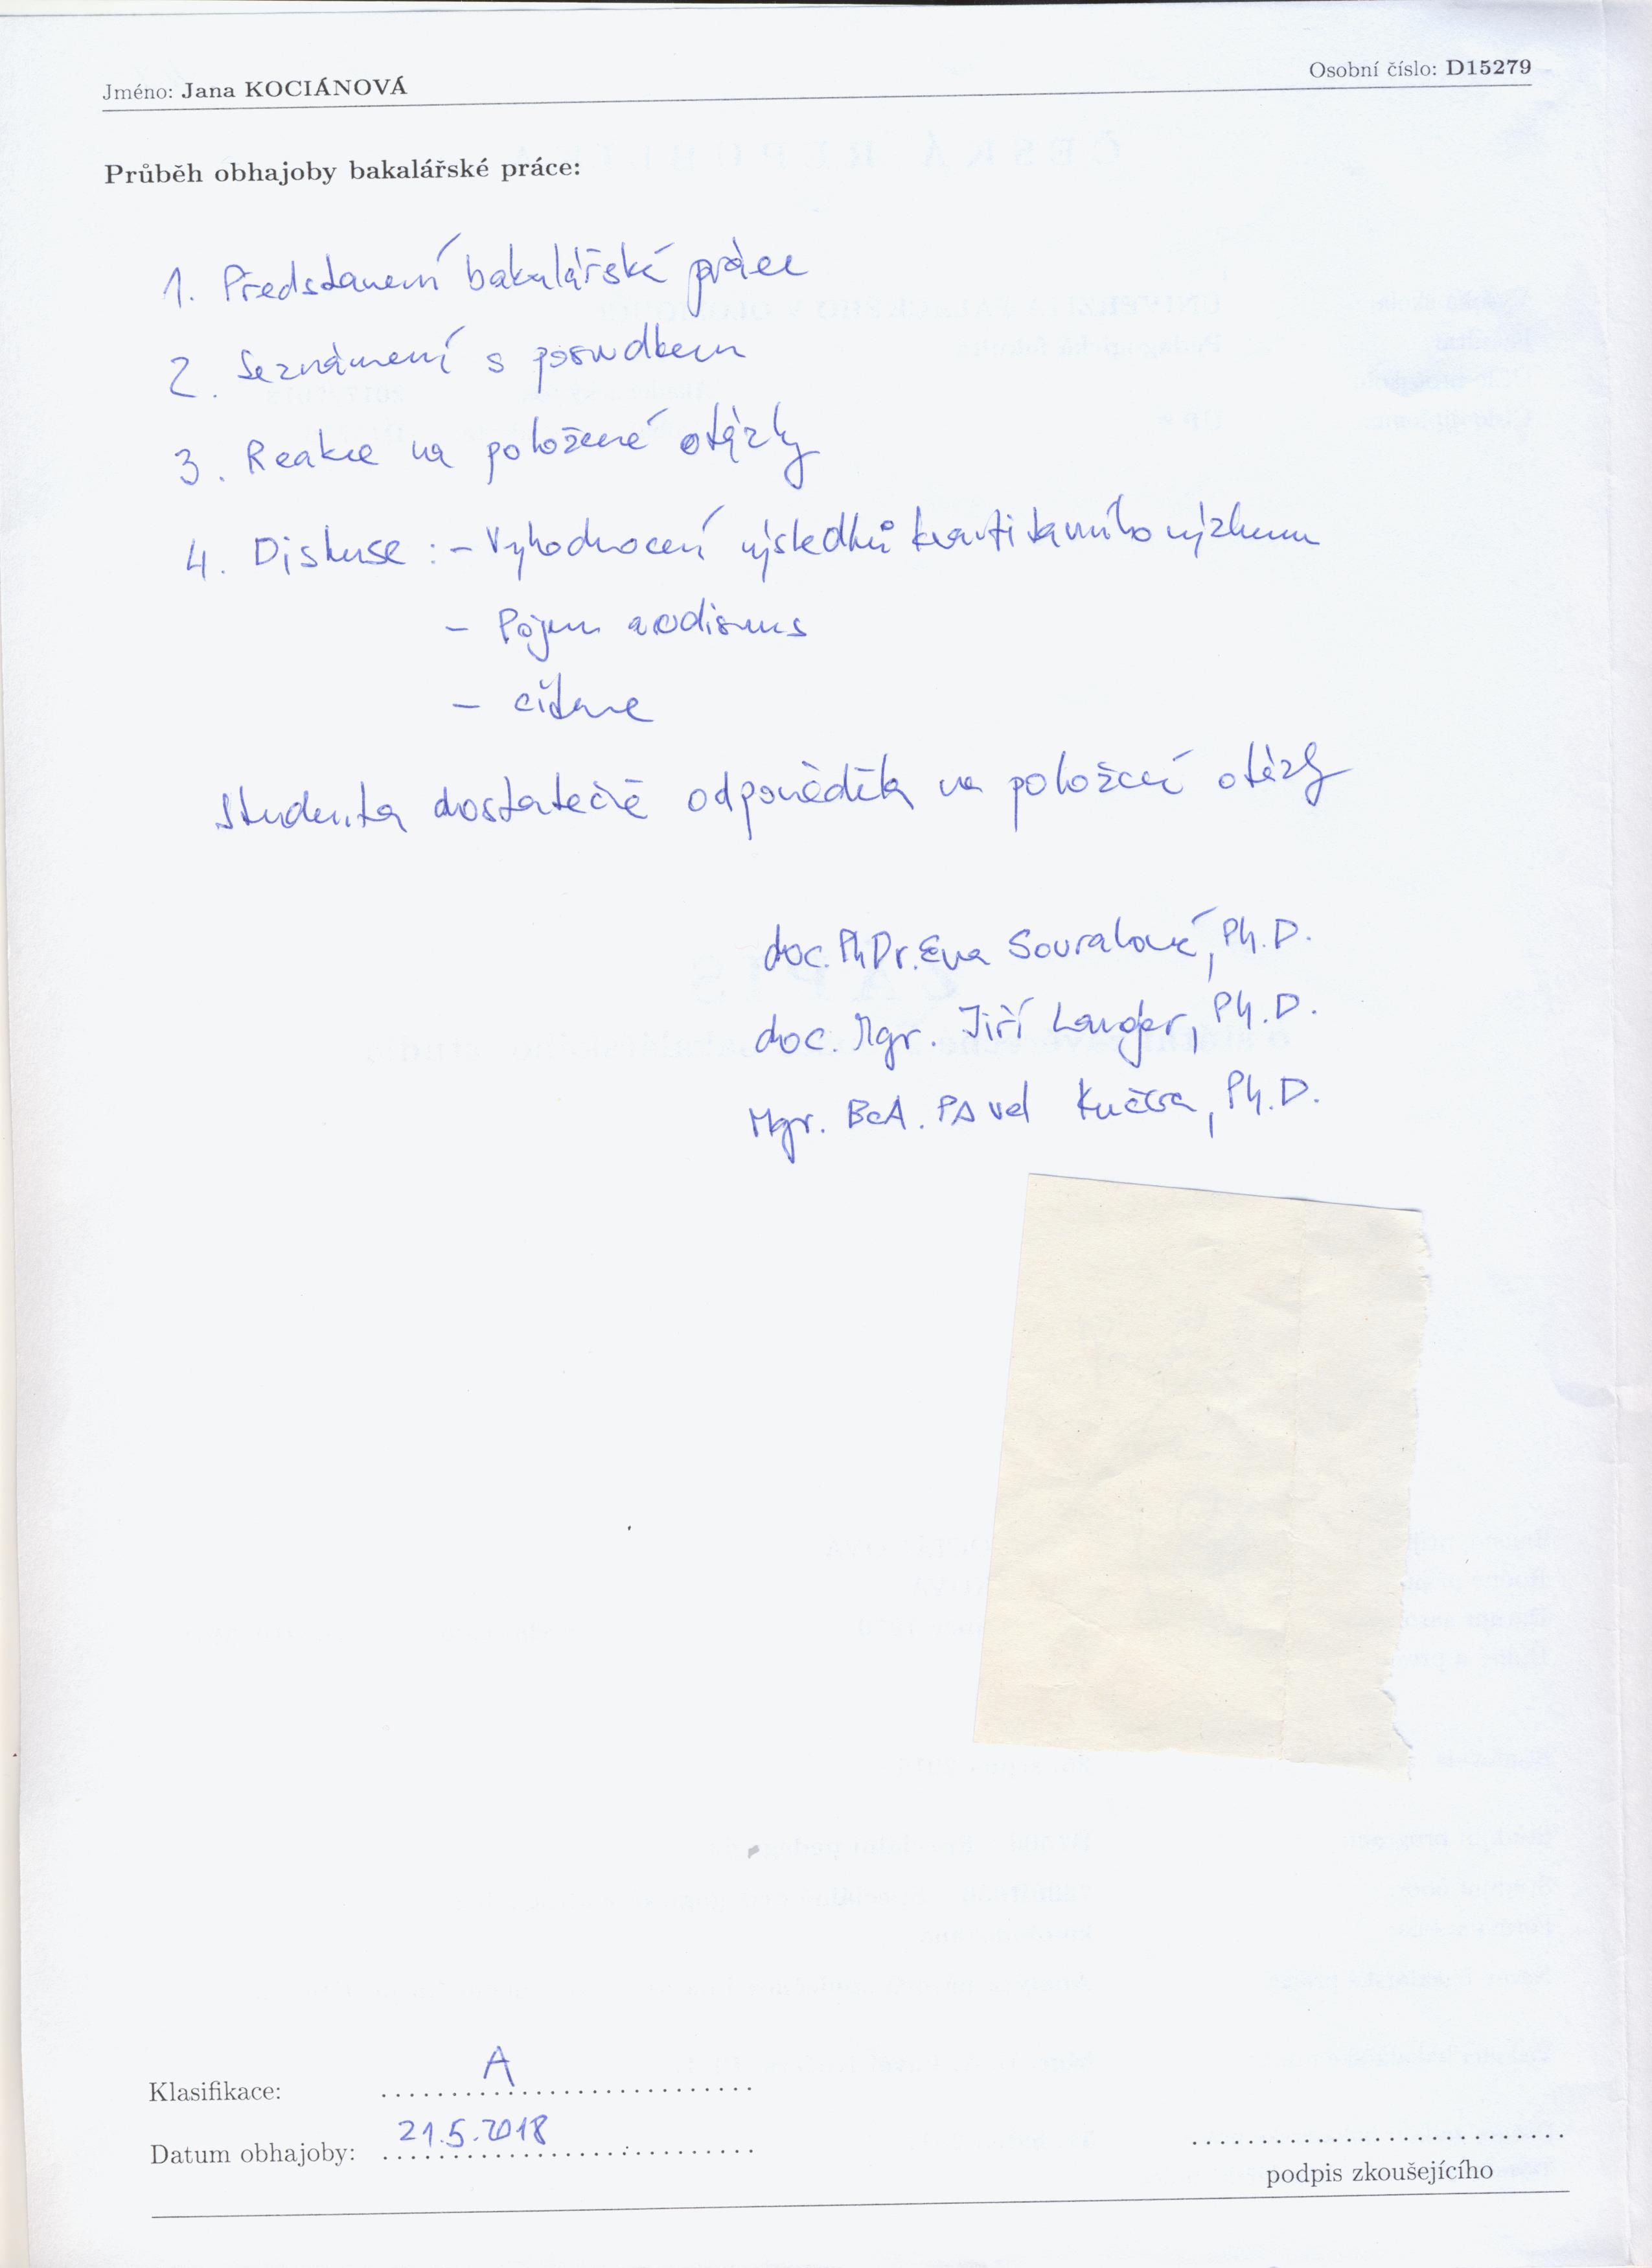 Jméno: Jana KOCIÁNOVÁ Osobní číslo: D15279
Průběh obhajoby bakalářské práce:
1. Představení bakalářské práce
2. Seznámení s posudkem
3. Reakce na položené otázky
4. Diskuse : - Vyhodnocení výsledků kvantitativního výzkumu
- Pojem audismus
- citace
Studentka dostatečně odpověděla na položené otázky
doc. PhDr. Eva Souralová, Ph.D.
doc. Mgr. Jiří Langer, Ph.D.
Mgr. BcA. Pavel Kučera, Ph.D.
Klasifikace: A
Datum obhajoby: 21.5.2018
podpis zkoušejícího